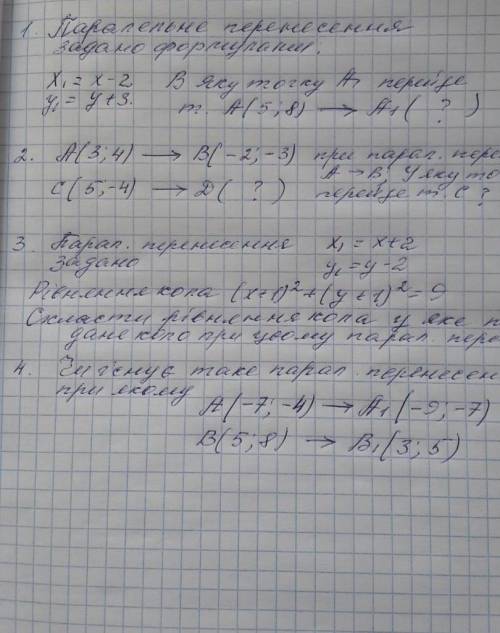 1. Паралельне перенесення
задано формулами.
x₁ = x-2 В яку точку A₁ перейде
y₁ = y+3. т. A(5;8) → A₁( ? )
2. A(3;4) → B(-2;-3) при парал. пере
A→B; У яку то
C(5;-4) → D( ? ) перейде т. C?
3. Парал. перенесення x₁ = x+2
задано y₁ = y-2
Рівняння кола (x-1)²+(y+1)²=9
Скласти рівняння кола у яке п
дане коло при цьому парал. пере
4. Чи існує таке парал. перенесен
при якому
A(-7;-4) → A₁(-9;-7)
B(5;8) → B₁(3;5)